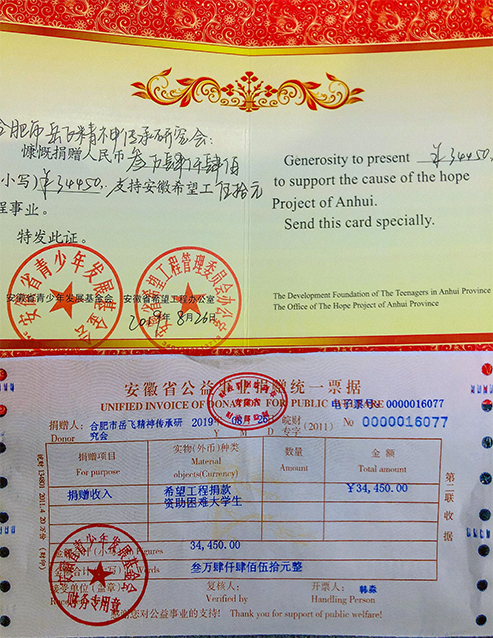 合肥市岳飞精神传承研究会：
慷慨捐赠人民币叁万肆仟肆佰
小写）¥34450. 支持安徽希望工 伍拾元
程事业。
特发此证。
安徽省青少年发展基金会 安徽省希望工程办公室
2019年8月26日
Generosity to present ¥34450.
to support the cause of the hope
Project of Anhui.
Send this card specially.
The Development Foundation of The Teenagers in Anhui Province
The Office of The Hope Project of Anhui Province
安徽省公益事业捐赠统一票据
UNIFIED INVOICE OF DONATION FOR PUBLIC WELFARE
电子票号: 0000016077
捐赠人: 合肥市岳飞精神传承研究会
Donor
2019 08 26 皖财
专字 (2011) No 0000016077
捐赠项目 实物(外币)种类 数量 金额
For purpose Material objects(Currency) Amount Total amount
捐赠收入 希望工程捐款 ¥34,450.00
资助困难大学生
金额合计(小写) In Figures 34,450.00
叁万肆仟肆佰伍拾元整
接受单位(盖章) 复核人: 开票人: 韩淼
Verified by Handling Person
感谢您对公益事业的支持! Thank you for support of public welfare!
第二联 收据
安徽省青少年发展基金会
财务专用章